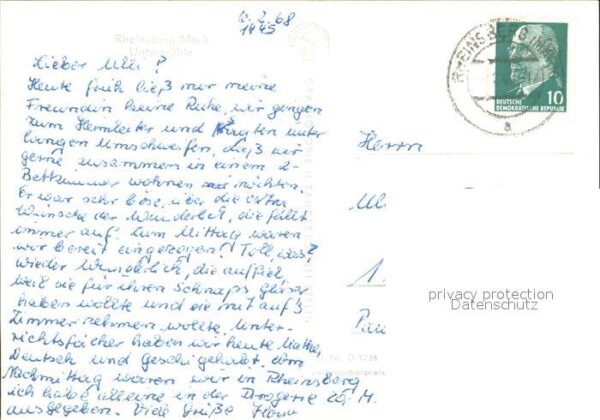 6.2.68
1945
Rheinsberg, Mark
Untermühle
Lieber Ulli!
Heute früh ließ mir meine
Freundin keine Ruhe, wir gingen
zum Heimleiter und fragten unter
langen Umschweifen, daß wir
gerne zusammen in einem 2-
Bettzimmer wohnen möchten.
Er war sehr böse, über die extra
Wünsche der Wunderlet, die fällt
immer auf. Zum Mittag waren
wir bereit eingezogen! Toll, was?
wieder Wunderlich, die auffiel,
weil sie für ihren Schnaps Gläser
haben wollte und sie mit auf's
Zimmer nehmen wollte. Unter-
richtsfächer haben wir heute Mathe,
Deutsch und Geschi gehabt. Am
Nachmittag waren wir in Rheinsberg
ich habe alleine in der Drogerie 25,- M.
ausgegeben. Viele Grüße
RHEINSBERG
a
10
DEUTSCHE
DEMOKRATISCHE REPUBLIK
Herrn
1.
privacy protection
Datenschutz